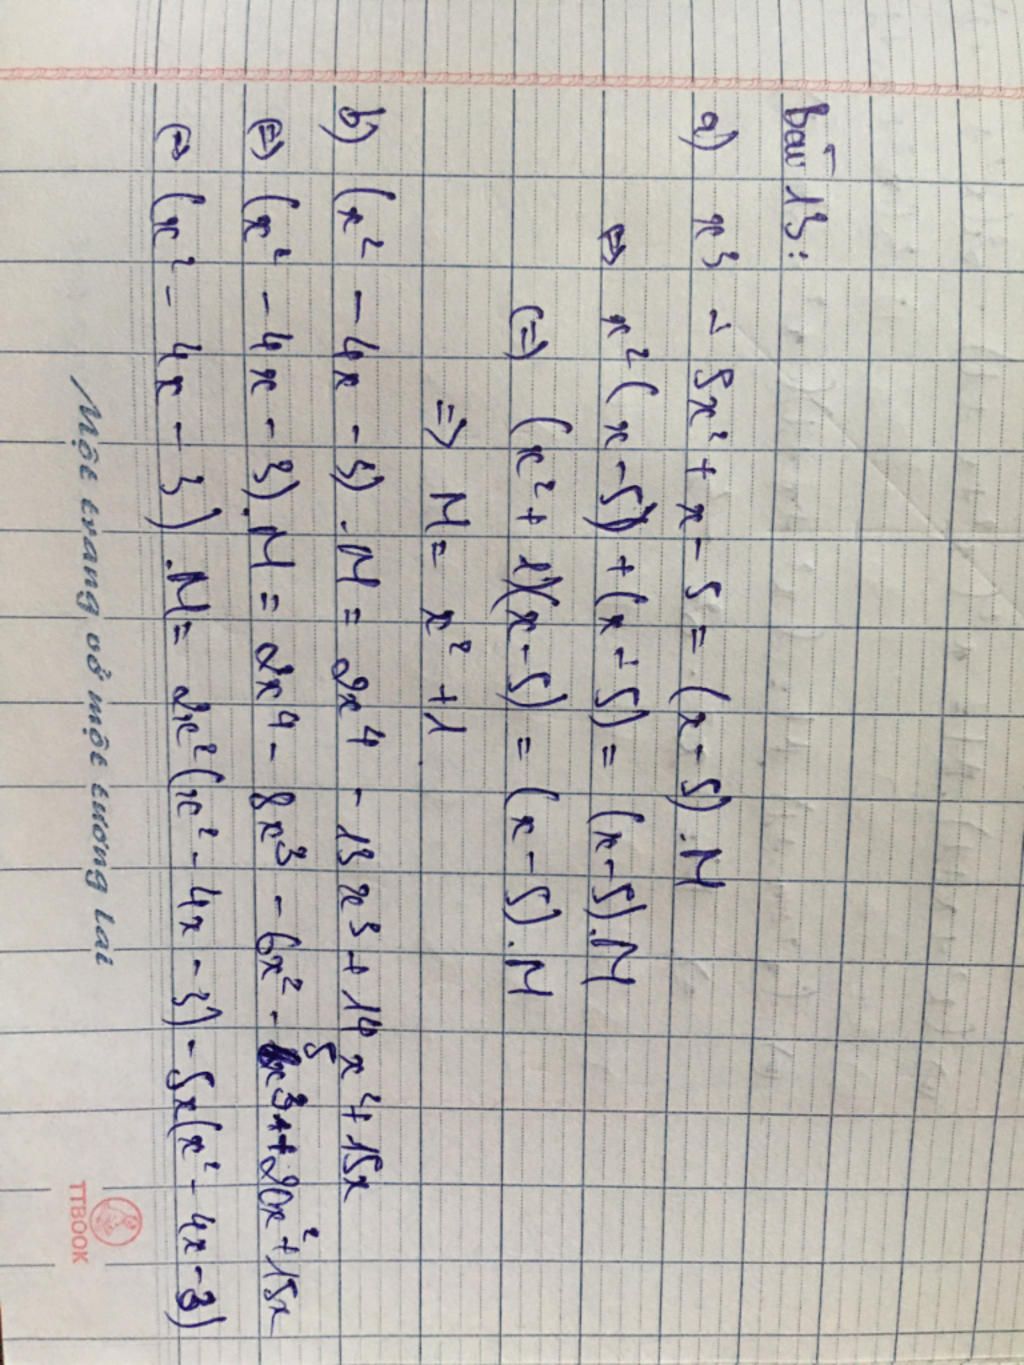 Bài 13:
a) x³ - 5x² + x - 5 = (x - 5).M
⇔ x²(x - 5) + (x - 5) = (x - 5).M
⇔ (x² + 1)(x - 5) = (x - 5).M
⇒ M = x² + 1
b) (x² - 4x - 3).M = 2x⁴ - 13x³ + 14x² + 15x
⇔ (x² - 4x - 3).M = 2x⁴ - 8x³ - 6x² - 5x³ + 20x² + 15x
⇔ (x² - 4x - 3).M = 2x²(x² - 4x - 3) - 5x(x² - 4x - 3)
Một trang vở một tương lai
TTBOOK